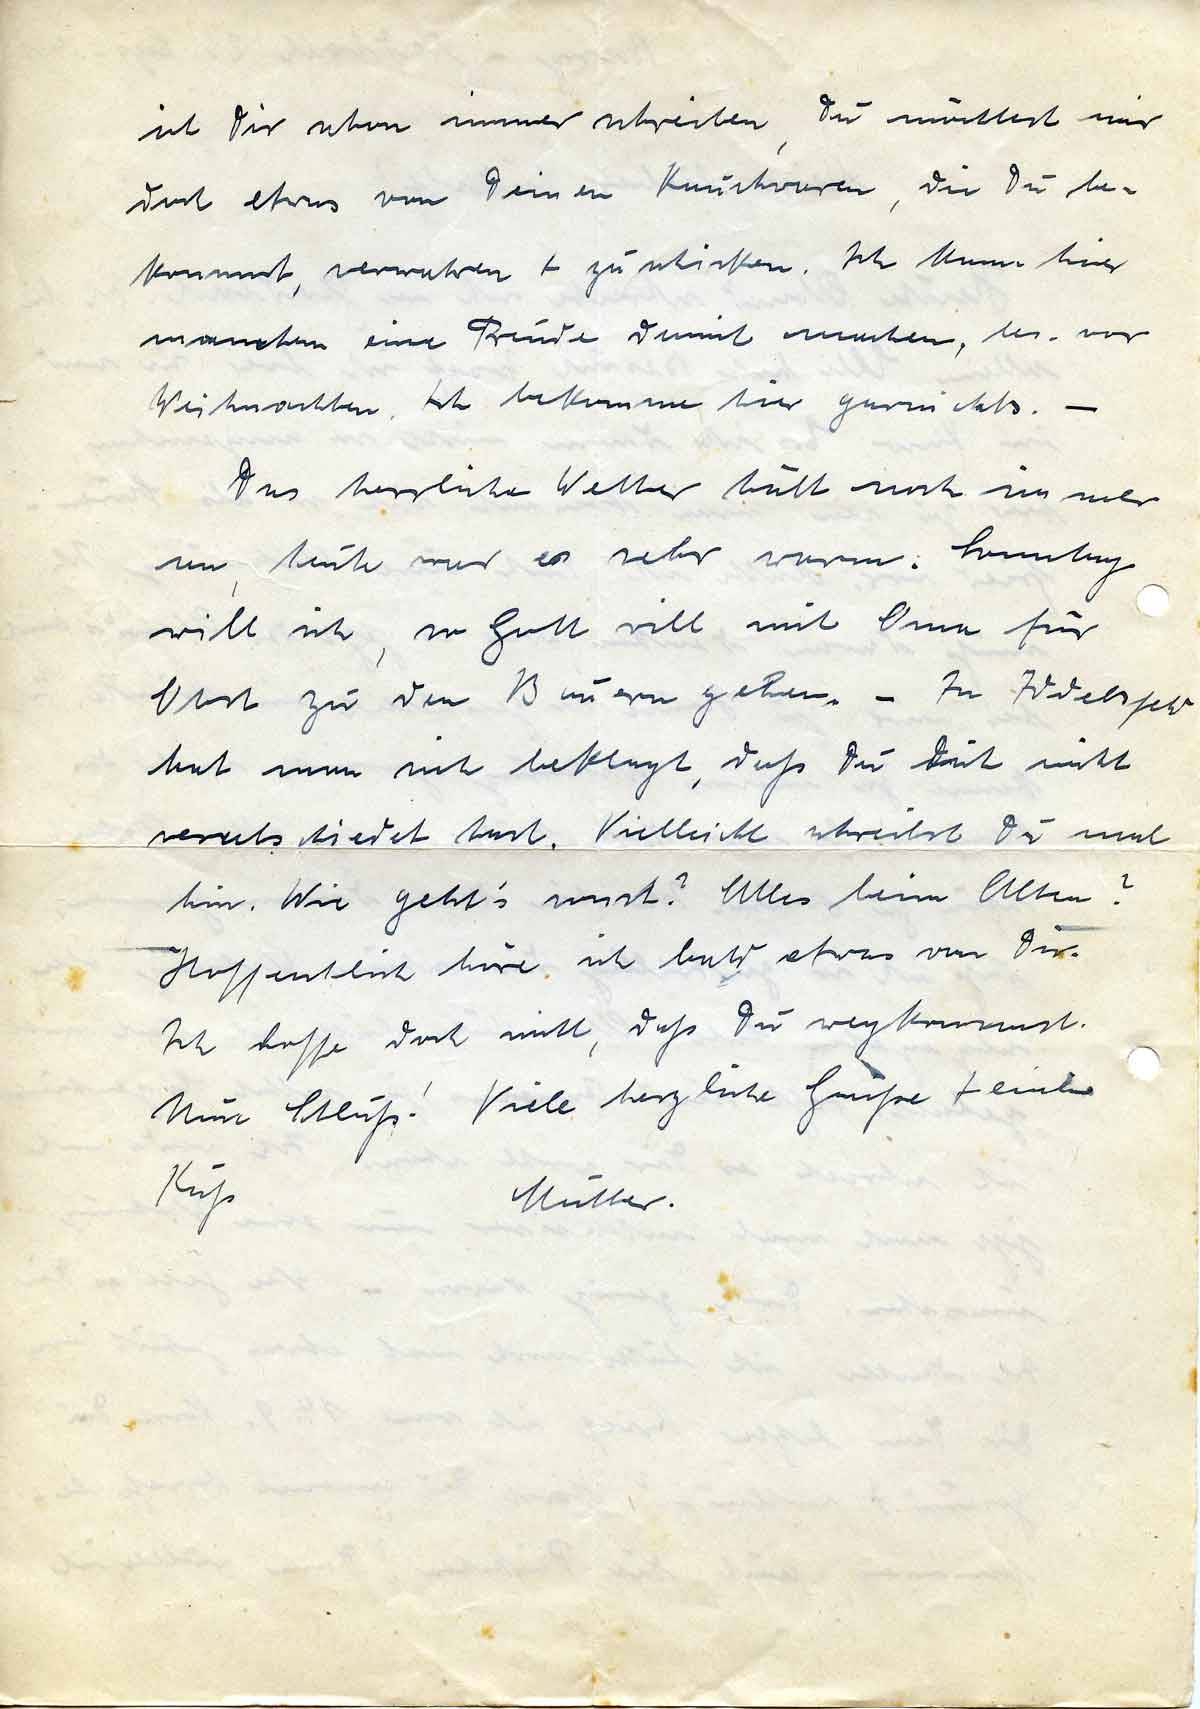 ich Dir schon immer schreiben, Du möchtest mir
doch etwas von Deinen Rauchwaren, die Du be-
kommst, verwahren + zu schicken. Ich kann hier
manchem eine Freude damit machen, bes. vor
Weihnachten. Ich bekomme hier garnichts. —
Das herrliche Wetter hält noch immer
an, heute war es sehr warm. Sonntag
will ich, so Gott will mit Oma für
Obst zu den Bauern gehen. – In Iddelsfeld
hat man sich beklagt, daß Du Dich nicht
verabschiedet hast. Vielleicht schreibst Du mal
hin. Wie geht's sonst? Alles beim Alten?
Hoffentlich höre ich bald etwas von Dir.
Ich hoffe doch nicht, daß Du wegkommst.
Nun Schluß! Viele herzliche Grüße + einen
Kuß Mutter.